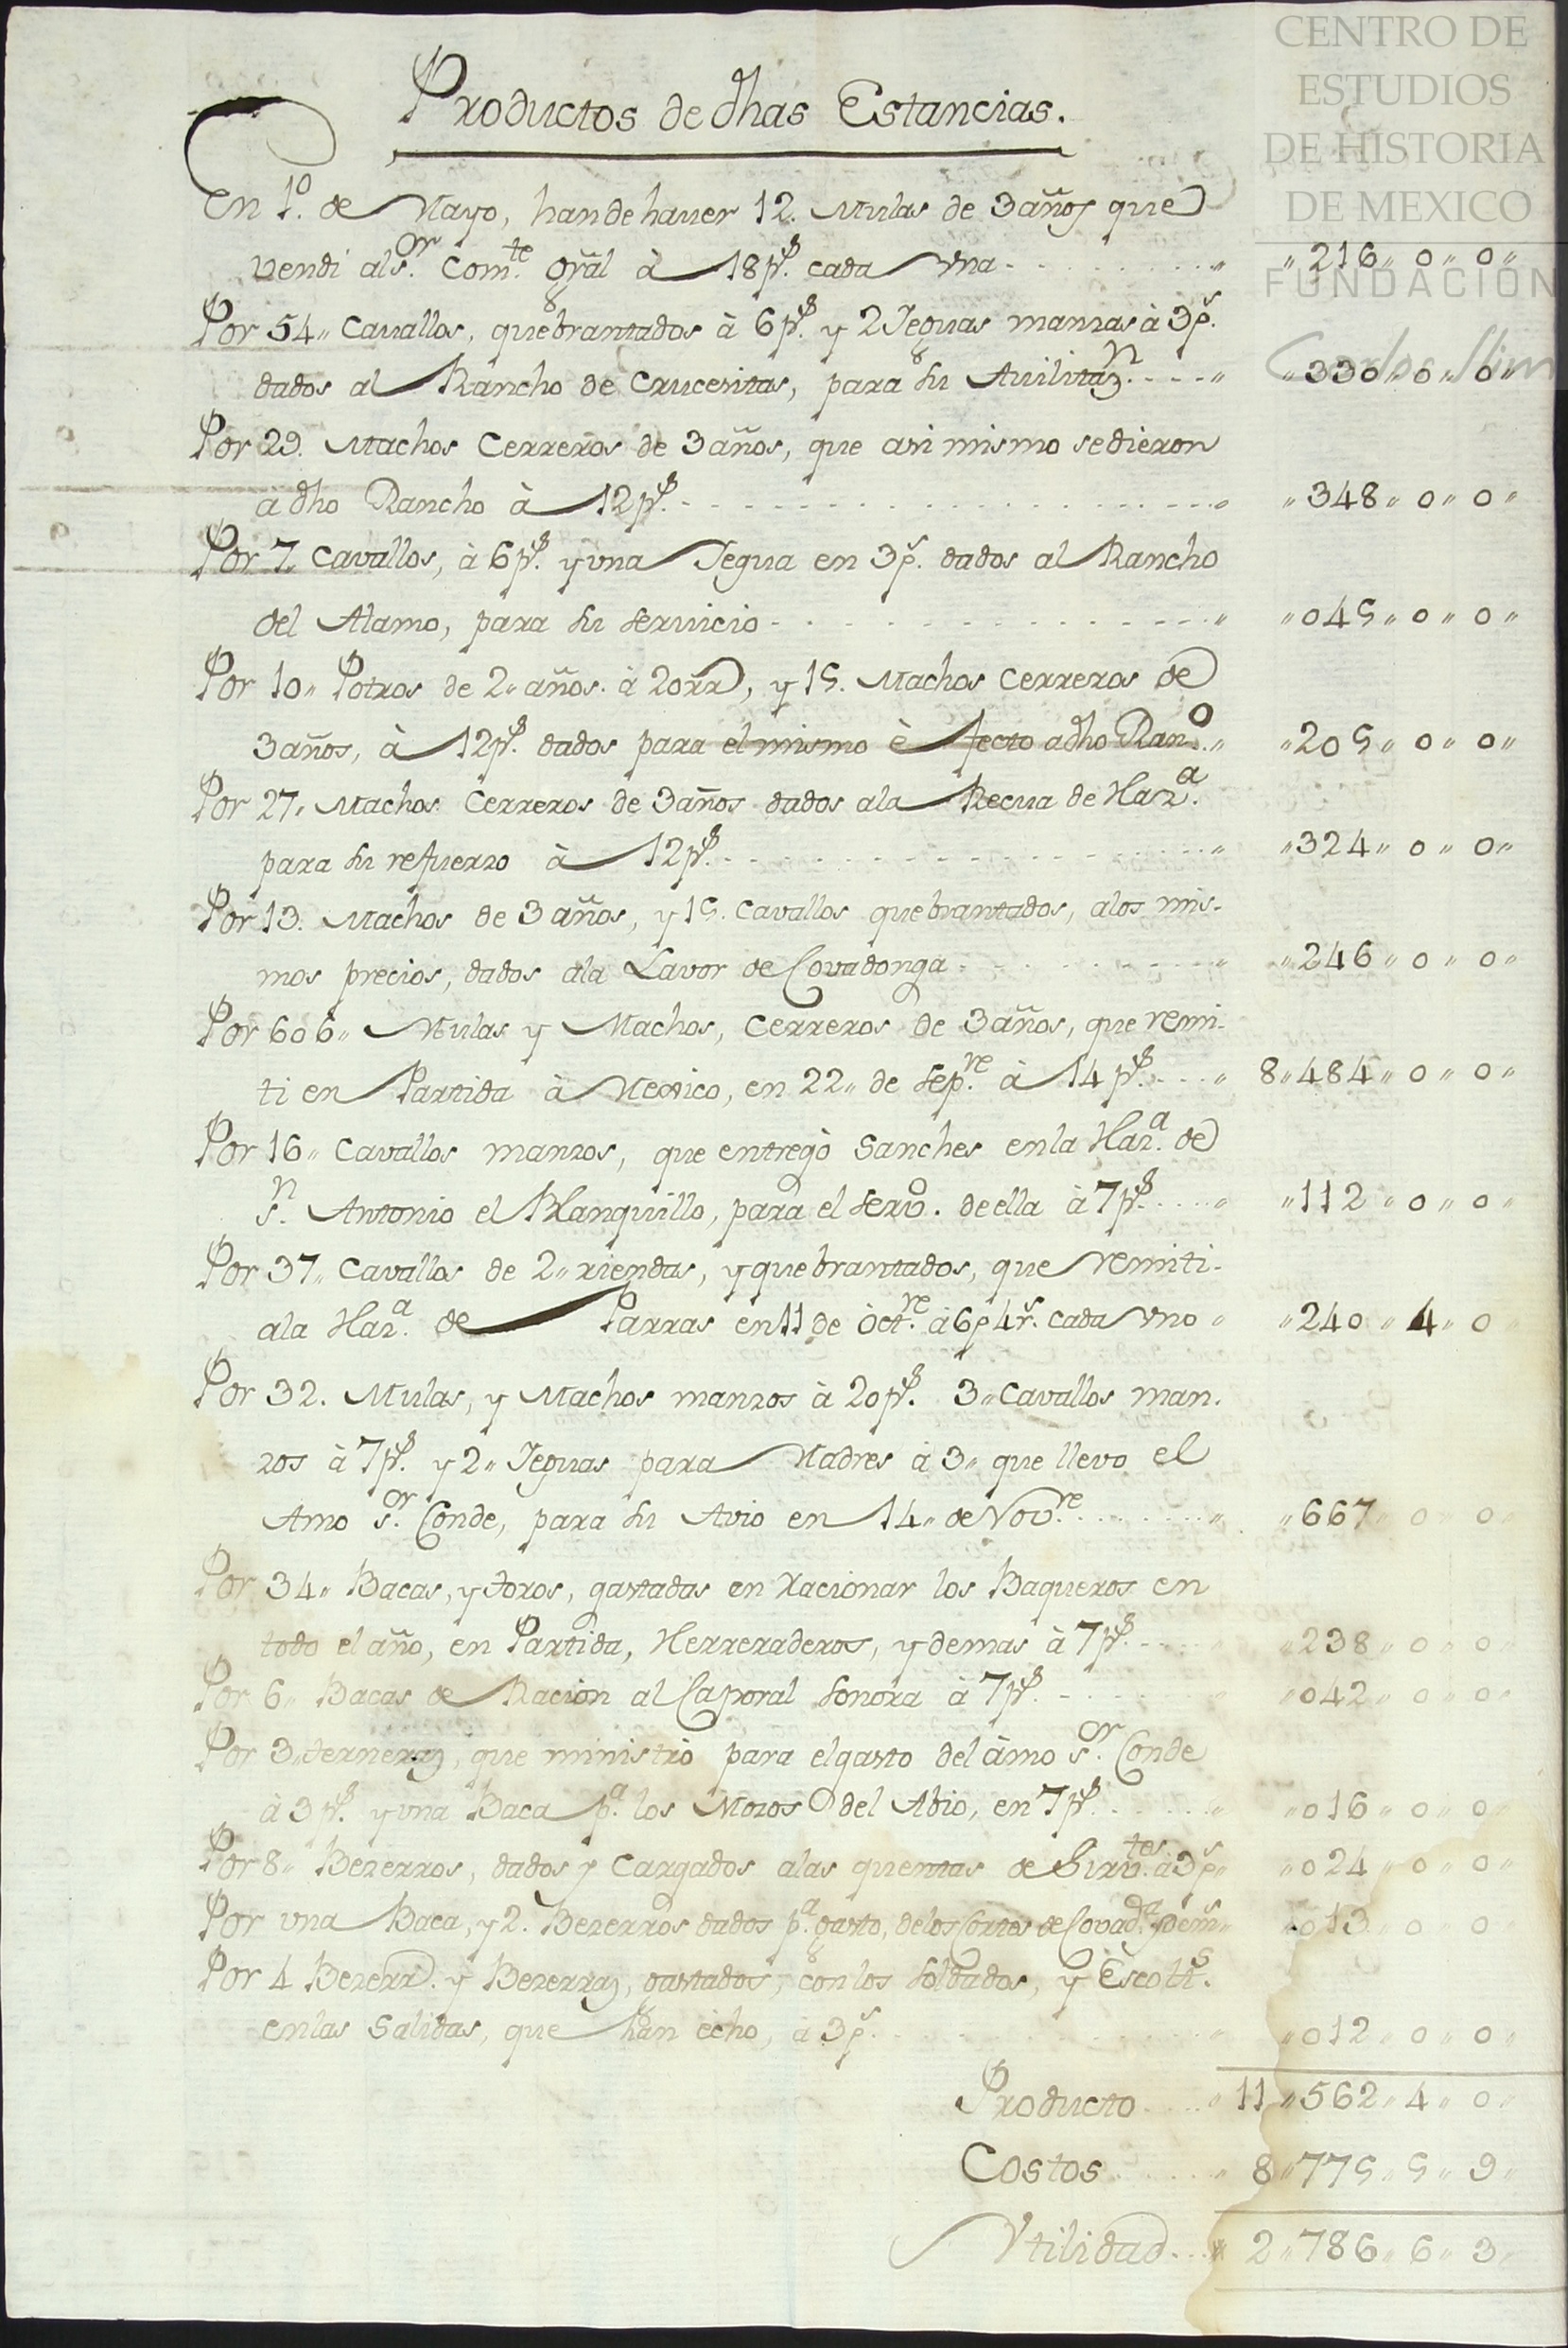 CENTRO DE
ESTUDIOS
DE HISTORIA
DE MEXICO
FUNDACIÓN
Carlos Slim
Productos de dhas Estancias.
En 1º. de Mayo, han de haver 12. Mulas de 3 años que
vendi al Sor. Comte. Gral à 18 ps. cada Vna " 216 " 0 " 0 "
Por 54 " Cavallos, quebrantados à 6 ps. y 2 Yeguas mansas à 3 ps.
dados al Rancho de Crucesitas, para su Avilitazn. " 330 " 0 " 0 "
Por 29. Machos Cerreros de 3 años, que asi mismo se dieron
à dho Rancho à 12 ps. " 348 " 0 " 0 "
Por 7 Cavallos, à 6 ps. y una Yegua en 3 ps. dados al Rancho
del Alamo, para su servicio " 045 " 0 " 0 "
Por 10 " Potros de 2 " años. à 20 rr, y 15. Machos Cerreros de
3 años, à 12 ps. dados para el mismo èfecto a dho Rano. " 205 " 0 " 0 "
Por 27. Machos Cerreros de 3 años dados a la Recua de Haza.
para su refuerzo à 12 ps. " 324 " 0 " 0 "
Por 13. Machos de 3 años, y 15. Cavallos quebrantados, a los mis-
mos precios, dados ala Lavor de Covadonga " 246 " 0 " 0 "
Por 606 " Mulas y Machos, Cerreros de 3 años, que remi-
ti en Partida à Mexico, en 22 " de Sepre. à 14 ps. " 8 " 484 " 0 " 0 "
Por 16 " Cavallos mansos, que entregò Sanches en la Haza. de
Sn. Antonio el Blanquillo, para el servo. de ella à 7 ps. " 112 " 0 " 0 "
Por 37 " Cavallos de 2 " riendas, y quebrantados, que remiti-
ala Haza. de Parras en 11 de òctre. à 6 p 4 rs. cada Vno " 240 " 4 " 0
Por 32. Mulas, y Machos mansos à 20 ps. 3 " Cavallos man-
sos à 7 ps. y 2 " Yeguas para Madres à 3 " que llevo el
Amo Sor. Conde, para su Avio en 14 " de Novre. " 667 " 0 " 0
Por 34 " Bacas, y toros, gastadas en racionar los Baqueros en
todo el año, en Partida, Herreraderos, y demas à 7 ps. " 238 " 0 " 0 "
Por 6 " Bacas de Racion al Caporal Sonora à 7 ps. " 042 " 0 " 0 "
Por 3 " terneras, que ministrò para el gasto del àmo Sor. Conde
à 3 ps. y una Baca pa. los Mozos del Abio, en 7 ps. " 016 " 0 " 0
Por 8 " Bezerros, dados y cargados alas quentas de Sirvtes. à 3 ps " 024 " 0 " 0 "
Por una Baca, y 2. Bezerros dados pa. gasto, de los Cortes de Covada. " 013 " 0 " 0 "
Por 4 Bezerr. y Bezerras, gastados, con los soldados, y Escolts.
en las Salidas, que han ècho, à 3 ps. " 012 " 0 " 0 "
Producto " 11 " 562 " 4 " 0 "
Costos " 8 " 775 " 5 " 9 "
Vtilidad " 2 " 786 " 6 " 3 "